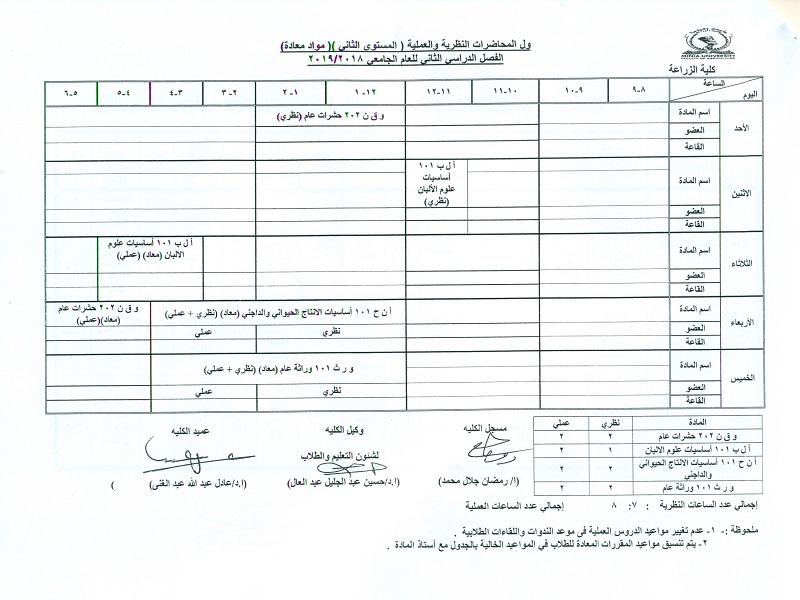 MINIA UNIVERSITY
كلية الزراعة
ول المحاضرات النظرية والعملية ( المستوى الثاني )( مواد معادة)
الفصل الدراسي الثاني للعام الجامعي ٢٠١٩/٢٠١٨
الساعة
اليوم
٨-٩
٩-١٠
١٠-١١
١١-١٢
١٢-١
١-٢
٢-٣
٣-٤
٤-٥
٥-٦
الأحد
اسم المادة
و ق ن ٢٠٢ حشرات عام (نظري)
العضو
القاعة
الاثنين
اسم المادة
أ ل ب ١٠١
أساسيات
علوم الألبان
(نظري)
العضو
القاعة
الثلاثاء
اسم المادة
أ ل ب ١٠١ أساسيات علوم
الالبان (معاد) (عملي)
العضو
القاعة
الأربعاء
اسم المادة
أ ن ح ١٠١ أساسيات الانتاج الحيواني والداجني (معاد) (نظري + عملي)
و ق ن ٢٠٢ حشرات عام
(معاد)(عملي)
العضو
نظري
عملي
القاعة
الخميس
اسم المادة
و ر ث ١٠١ وراثة عام (معاد) (نظري + عملي)
العضو
نظري
عملي
القاعة
المادة
نظري
عملي
و ق ن ٢٠٢ حشرات عام
٢
٢
أ ل ب ١٠١ أساسيات علوم الالبان
١
٢
أ ن ح ١٠١ أساسيات الانتاج الحيواني
والداجني
٢
٢
و ر ث ١٠١ وراثة عام
٢
٢
إجمالي عدد الساعات النظرية : ٧: ٨ إجمالي عدد الساعات العملية
مسجل الكليه
(ا/ رمضان جلال محمد)
وكيل الكليه
لشنون التعليم والطلاب
(ا.د/حسين عبد الجليل عبد العال)
عميد الكليه
(ا.د/عادل عبد الله عبد الغنى)
(
ملحوظة :- ١- عدم تغيير مواعيد الدروس العملية فى موعد الندوات واللقاءات الطلابية .
٢- يتم تنسيق مواعيد المقررات المعادة للطلاب في المواعيد الخالية بالجدول مع أستاذ المادة .